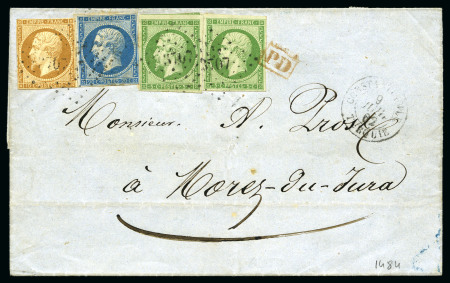 EMPIRE FRANC. EMPIRE FRANC. EMPIRE FRANC. EMPIRE FRANC.
3707
PD
Monsieur A. Prost
à Morez-du-Jura
1484